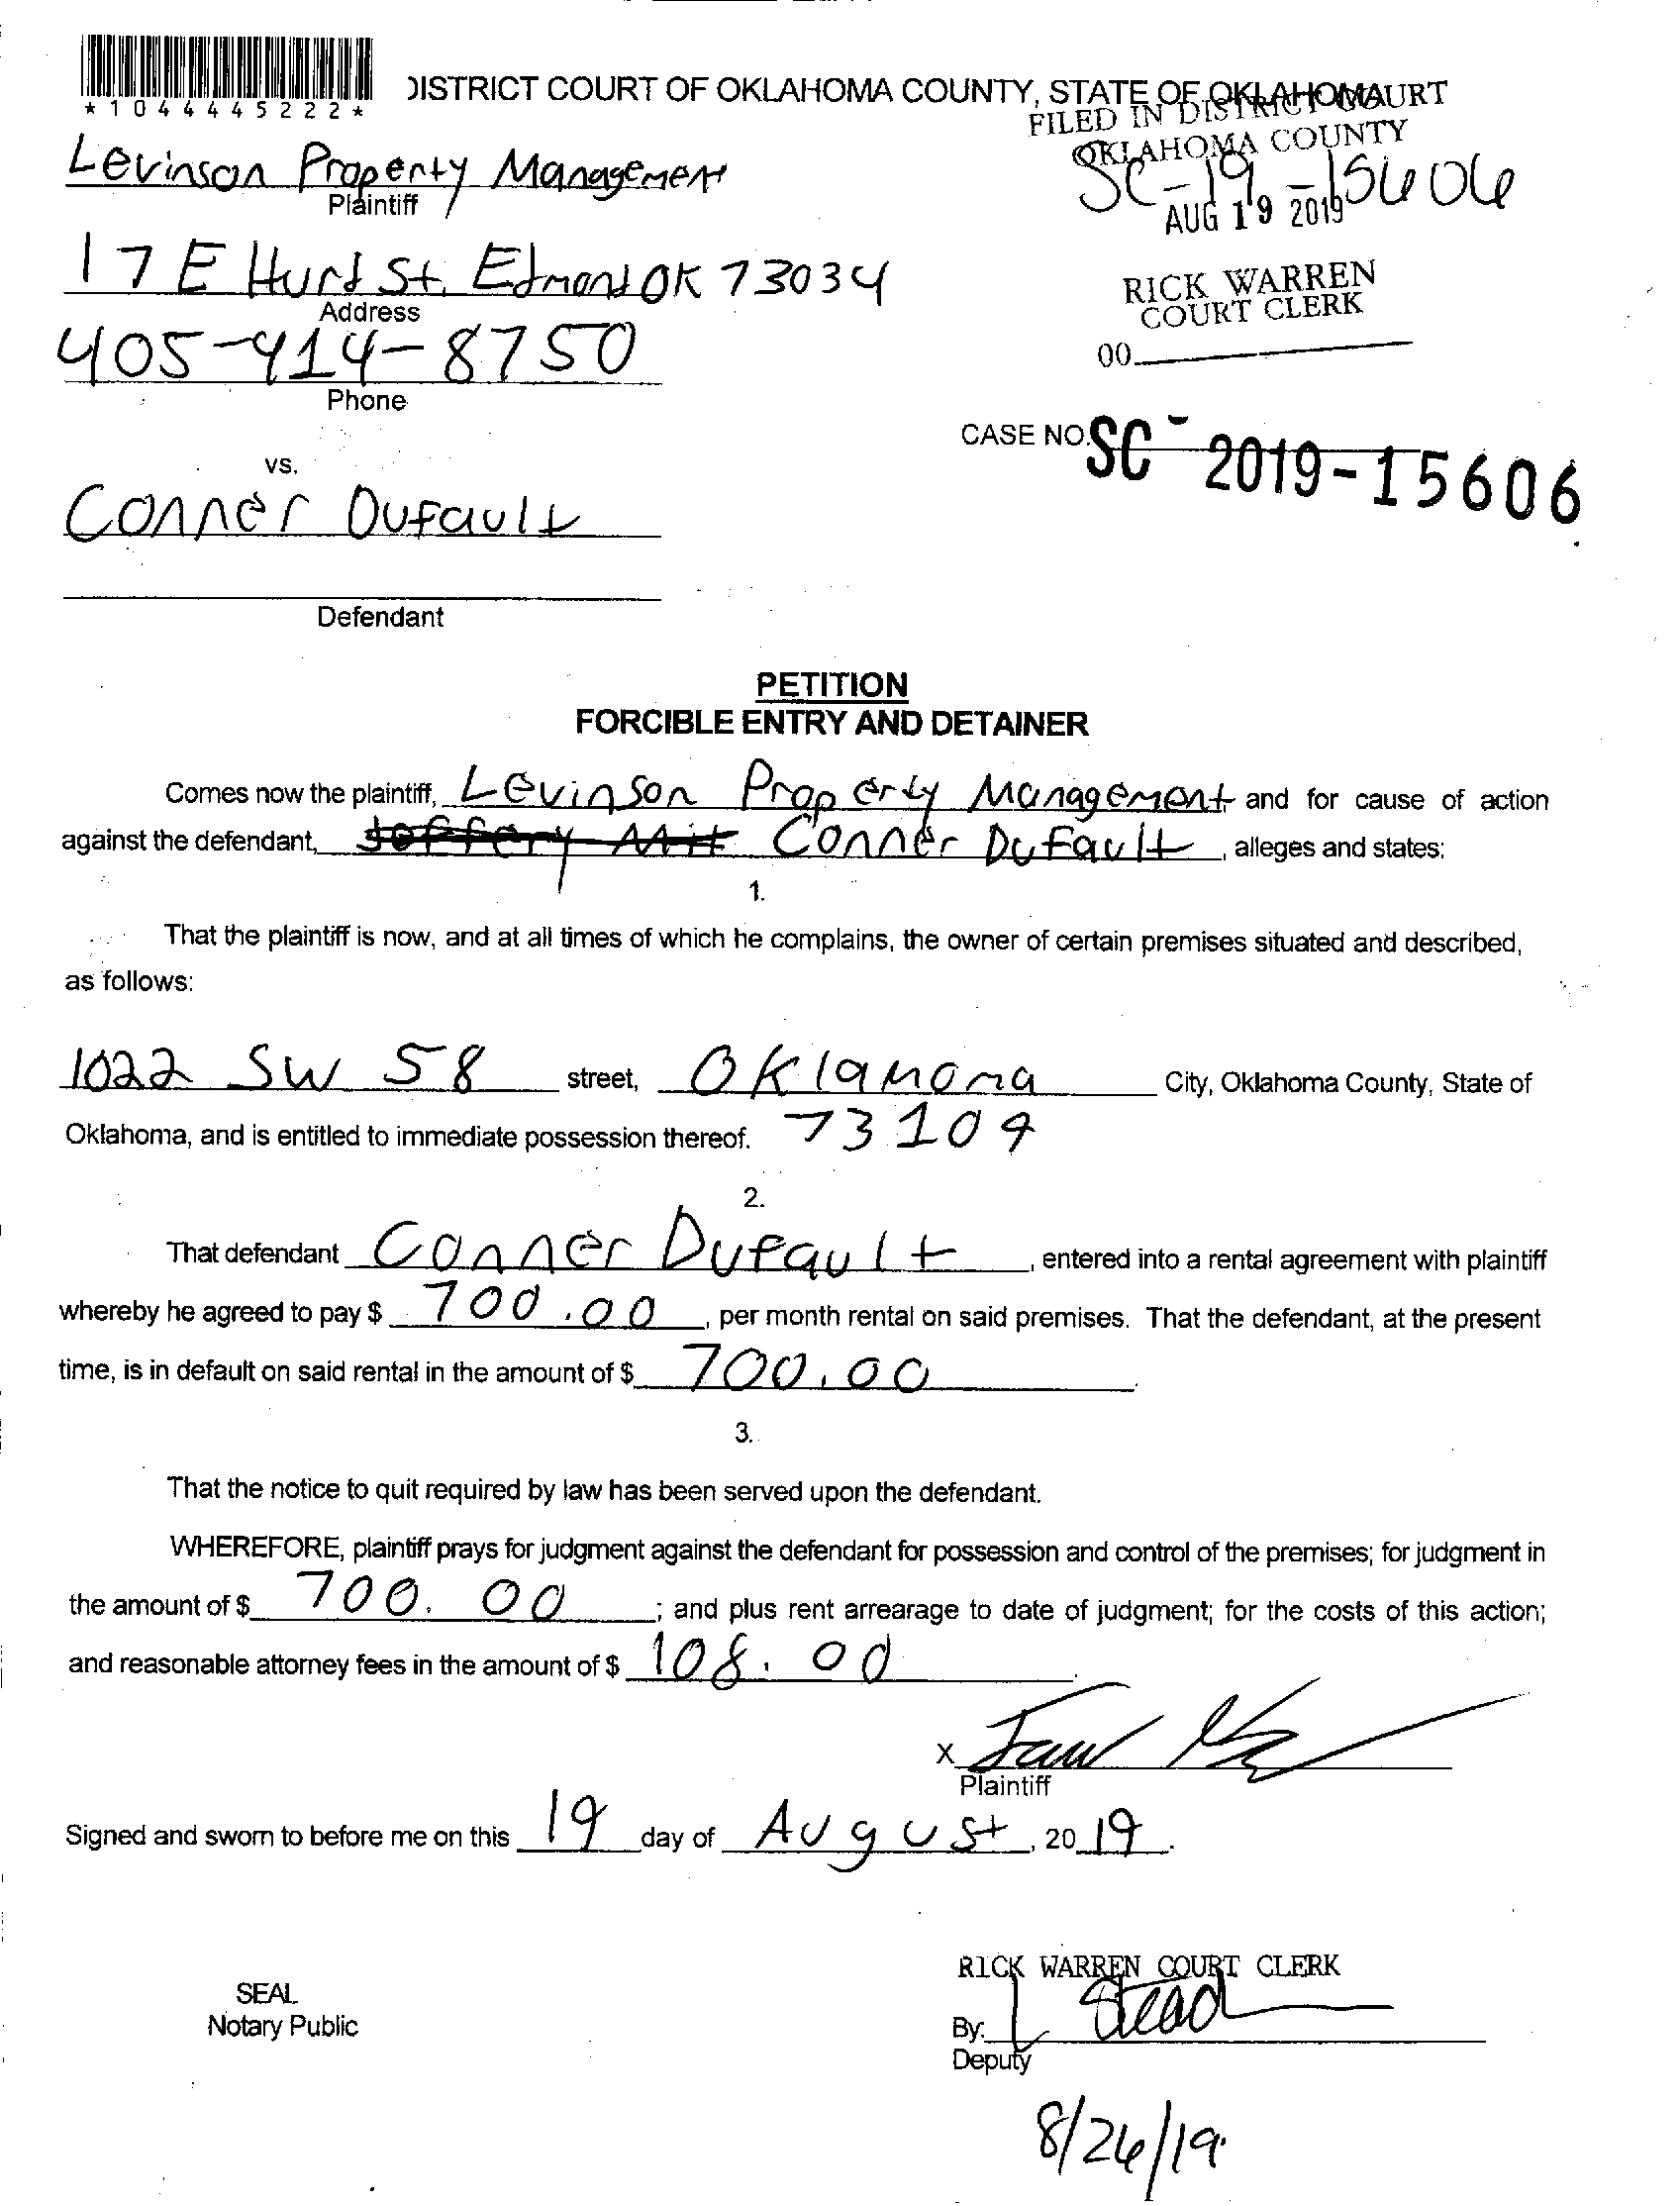 *1044445222*
DISTRICT COURT OF OKLAHOMA COUNTY, STATE OF OKLAHOMA
FILED IN DISTRICT COURT
OKLAHOMA COUNTY
Levinson Property Management
Plaintiff
SC-19-15606
AUG 19 2019
17 E Hurd St. Edmond OK 73034
Address
RICK WARREN
COURT CLERK
405-414-8750
Phone
00
CASE NO. SC-2019-15606
vs.
Conner Dufault
Defendant
PETITION
FORCIBLE ENTRY AND DETAINER
Comes now the plaintiff, Levinson Property Management and for cause of action
against the defendant, Jeffery Mit Conner Dufault, alleges and states:
1.
That the plaintiff is now, and at all times of which he complains, the owner of certain premises situated and described,
as follows:
1022 SW 58 street, Oklahoma City, Oklahoma County, State of
Oklahoma, and is entitled to immediate possession thereof. 73109
2.
That defendant Conner Dufault, entered into a rental agreement with plaintiff
whereby he agreed to pay $ 700.00, per month rental on said premises. That the defendant, at the present
time, is in default on said rental in the amount of $ 700.00.
3.
That the notice to quit required by law has been served upon the defendant.
WHEREFORE, plaintiff prays for judgment against the defendant for possession and control of the premises; for judgment in
the amount of $ 700.00; and plus rent arrearage to date of judgment; for the costs of this action;
and reasonable attorney fees in the amount of $ 108.00.
X
Plaintiff
Signed and sworn to before me on this 19 day of August, 2019.
RICK WARREN COURT CLERK
SEAL
Notary Public
By: L Stead
Deputy
8/26/19